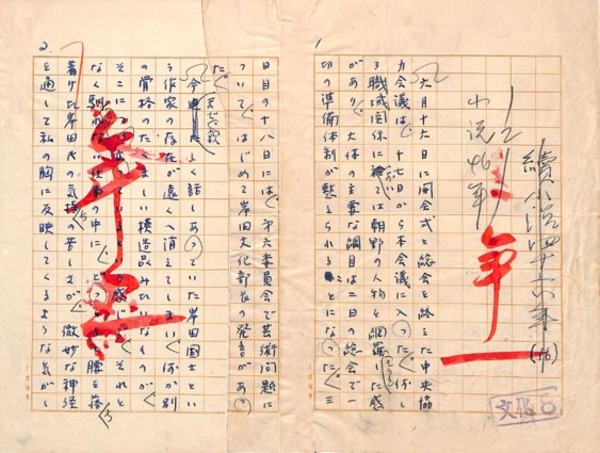 1
小説46年
六月十六日に開会式と総会を終えた中央協
力会議は、十七日から本会議に入った。併し
職域関係に於いては朝野の人物を網羅した感
があり、大体の主要な綱目は二日の総会で一
切の準備体制が整えられることになった。三
文化
8
2
日目の十八日には、第六委員会で芸術問題に
ついてはじめて岸田文化部長の発言があっ
た。
しく話しあっていた岸田国士とい
う作家の存在が遠くへ消えてしまい、何か別
の骨格のたくましい模造品みたいなものが
そこに 感じ それと
なく馴れない仕事の中に 腰を落
着けた岸田氏の気持の苦しさが、微妙な神経
を通して私の胸に反映してくるような気がし